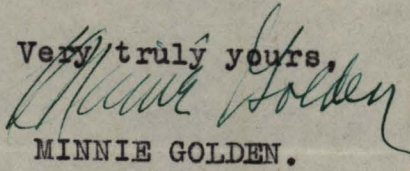 Very truly yours,
Minnie Golden
MINNIE GOLDEN.